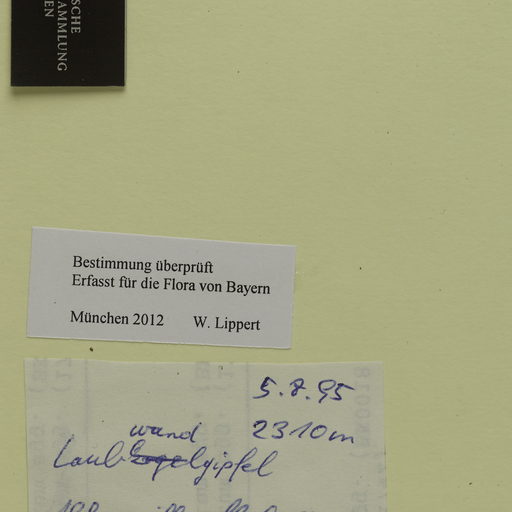 SCHE
AMMLUNG
EN
Bestimmung überprüft
Erfasst für die Flora von Bayern
München 2012 W. Lippert
5.8.95
wand 2310m
Laub gipfel